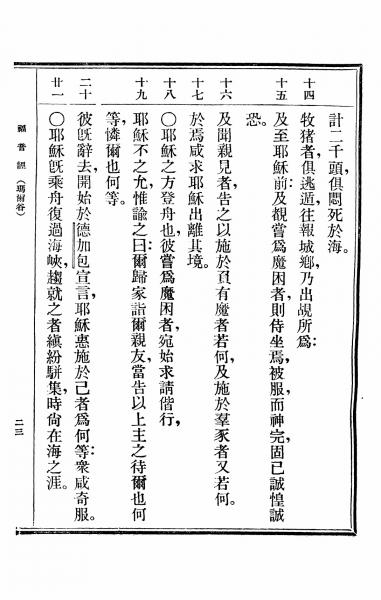 計二千頭,俱悶死於海。
十四 牧猪者俱逃遁,往報城鄉,乃出覘所爲;
十五 及至耶穌前;及覩嘗爲魔困者,則侍坐焉,被服,而神完固,已誠惶誠
恐。
十六 及聞親見者告之以施於負有魔者若何,及施於羣豕者又若何。
十七 於焉咸求耶穌出離其境。
十八 〇耶穌之方登舟也,彼嘗爲魔困者,宛始求請偕行,
十九 耶穌不之允,惟諭之曰:爾歸家詣爾親友,當告以上主之待爾也何
等,憐爾也何等。
二十 彼旣辭去,開始於德加包宣言,耶穌惠施於己者爲何等;衆咸奇服。
廿一 〇耶穌旣乘舟復過海峽,趨就之者繽紛駢集,時尙在海之涯。
福音經 (瑪爾谷) 二三